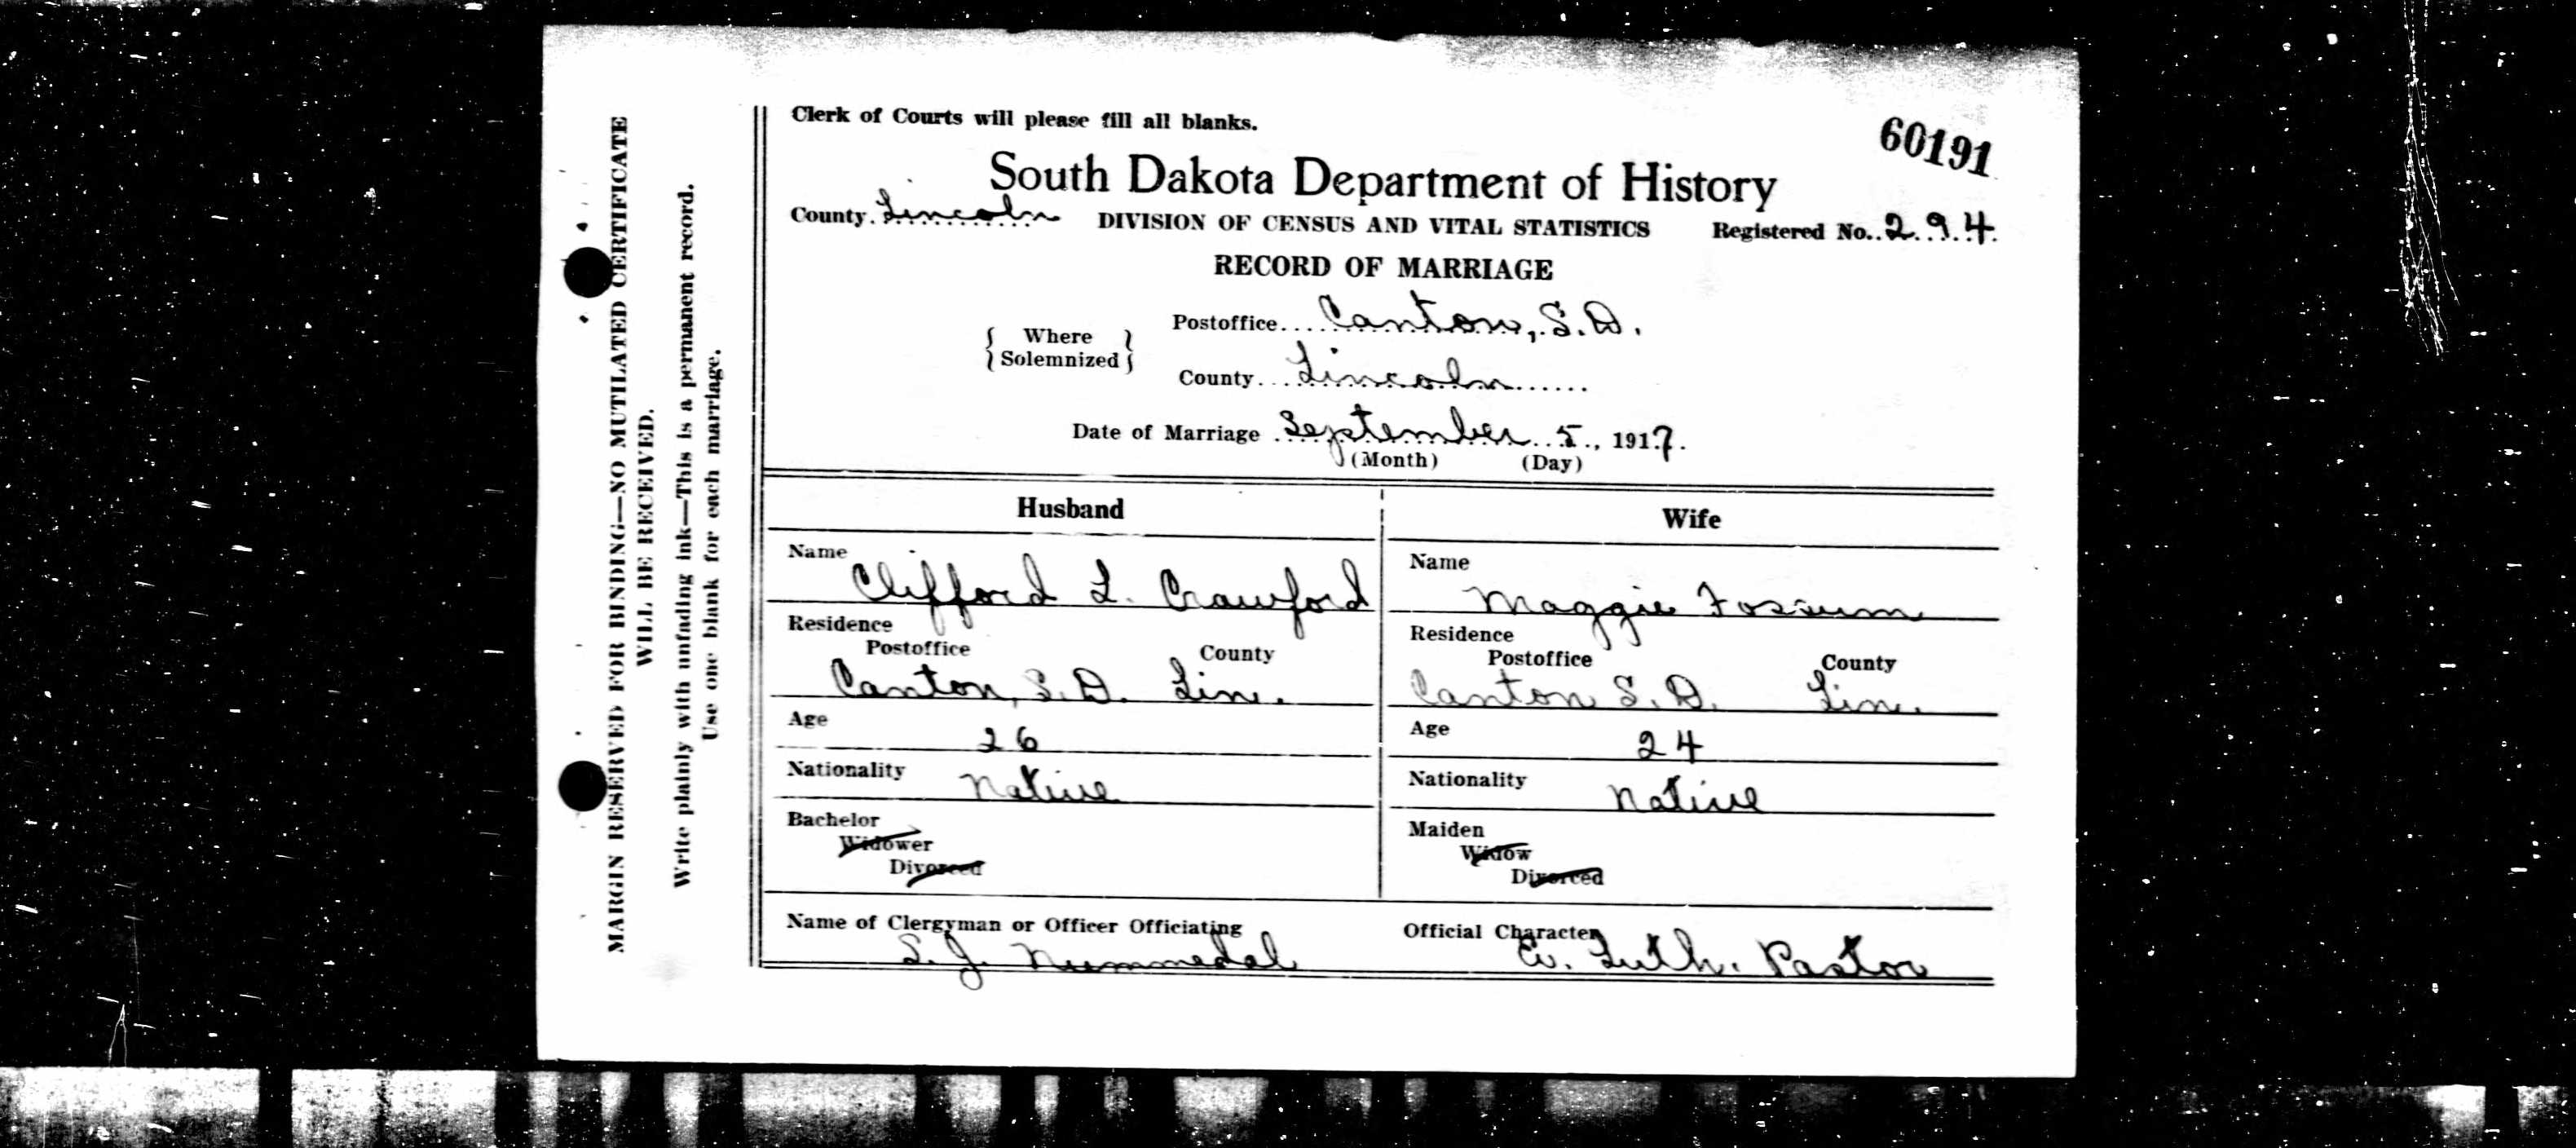 MARGIN RESERVED FOR BINDING—NO MUTILATED CERTIFICATE
WILL BE RECEIVED.
Write plainly with unfading ink—This is a permanent record.
Use one blank for each marriage.
Clerk of Courts will please fill all blanks.
60191
South Dakota Department of History
County Lincoln DIVISION OF CENSUS AND VITAL STATISTICS Registered No. 294
RECORD OF MARRIAGE
Where Solemnized
Postoffice Canton, S.D.
County Lincoln
Date of Marriage September 5, 1917.
(Month) (Day)
Husband
Name
Clifford L. Crawford
Residence
Postoffice County
Canton, S.D. Lin.
Age
26
Nationality Native
Bachelor
Widower
Divorced
Wife
Name
Maggie Fossum
Residence
Postoffice County
Canton S.D. Lin.
Age
24
Nationality Native
Maiden
Widow
Divorced
Name of Clergyman or Officer Officiating
S. J. Nummedal
Official Character
Ev. Luth. Pastor